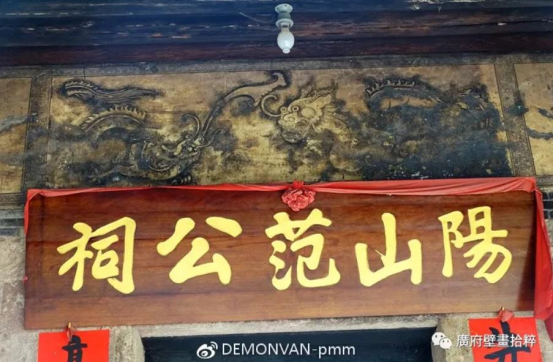 陽山范公祠
DEMONVAN-pmm
廣府壁畫拾粹